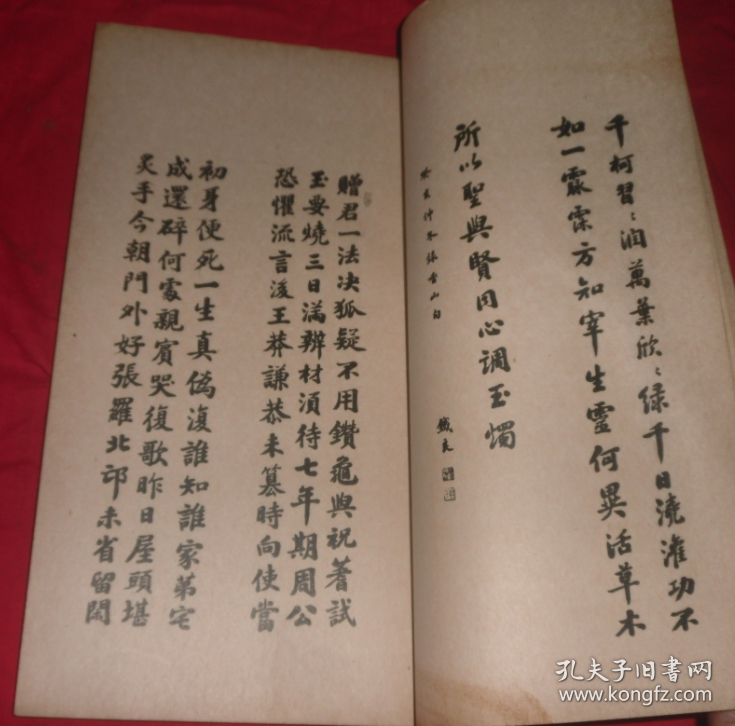 千柯習〻潤萬葉欣〻绿千日澆灌功不
如一霡霂方知宰生靈何異活草木
所以聖與賢同心調玉燭
鐵良
贈君一法决狐疑不用鑽龜與祝蓍試
玉要燒三日滿辨材須待七年期周公
恐懼流言後王莽謙恭未篡時向使當
初身便死一生真偽復誰知誰家第宅
成還碎何處親賓哭復歌昨日屋頭堪
炙手今朝門外好張羅北邙未省留閑
孔夫子旧书网
www.kongfz.com